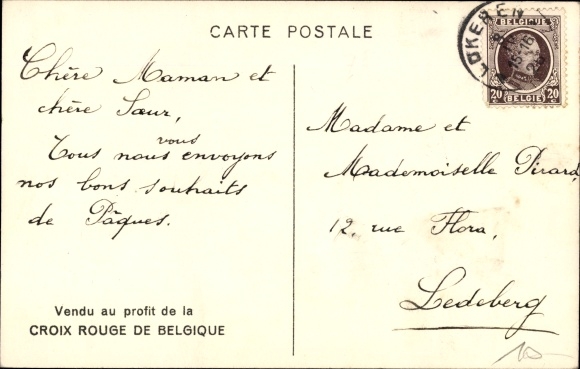 CARTE POSTALE
LOKEREN
15-16
BELGIQUE
20 BELGIË 20
Chère Maman et
chère Sœur,
Tous nous vous envoyons
nos bons souhaits
de Pâques.
Madame et
Mademoiselle Pirard,
12, rue Flora,
Ledeberg
Vendu au profit de la
CROIX ROUGE DE BELGIQUE
10